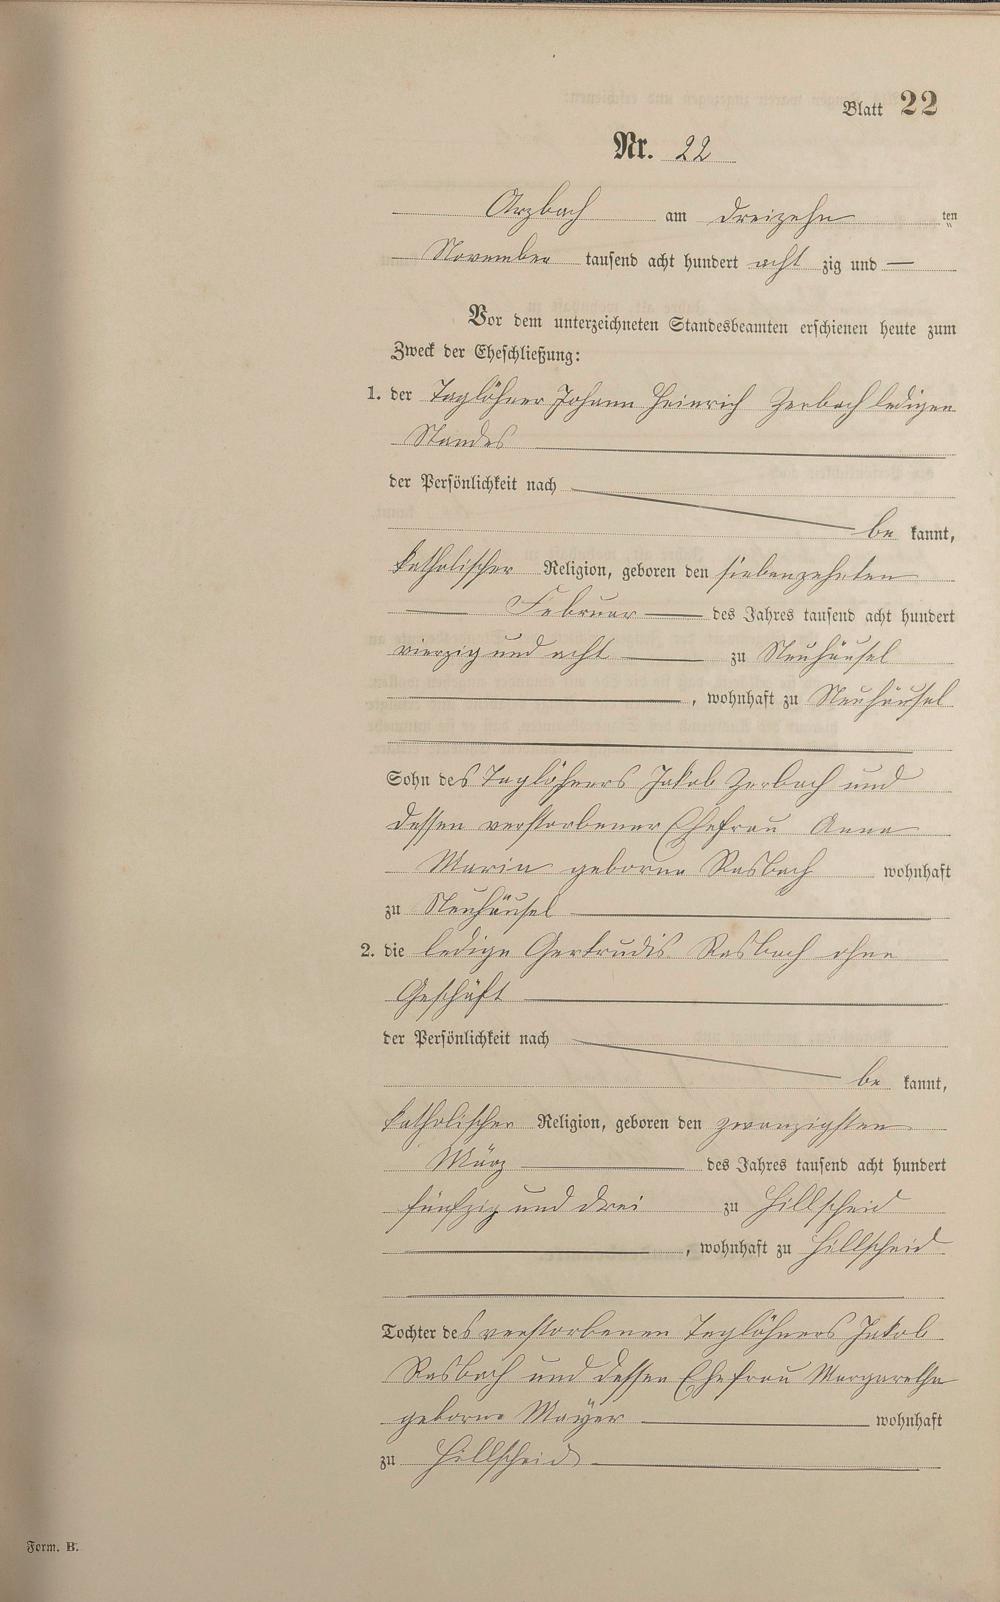 Blatt 22
Nr. 22
Arzbach am dreizehn ten
November tausend acht hundert acht zig und —
Vor dem unterzeichneten Standesbeamten erschienen heute zum
Zweck der Eheschließung:
1. der Taglöhner Johann Heinrich Zerbach ledigen
Standes
der Persönlichkeit nach
be kannt,
katholischer Religion, geboren den siebenzehnten
Februar des Jahres tausend acht hundert
vierzig und acht zu Neuhäusel
, wohnhaft zu Neuhäusel
Sohn des Taglöhners Jakob Zerbach und
dessen verstorbener Ehefrau Anna
Maria geborne Rasbach wohnhaft
zu Neuhäusel
2. die ledige Gertrudis Rasbach ohne
Geschäft
der Persönlichkeit nach
be kannt,
katholischer Religion, geboren den zwanzigsten
März des Jahres tausend acht hundert
fünfzig und drei zu Hillscheid
, wohnhaft zu Hillscheid
Tochter des verstorbenen Taglöhners Jakob
Rasbach und dessen Ehefrau Margaretha
geborne Mayer wohnhaft
zu Hillscheid
Form. B.